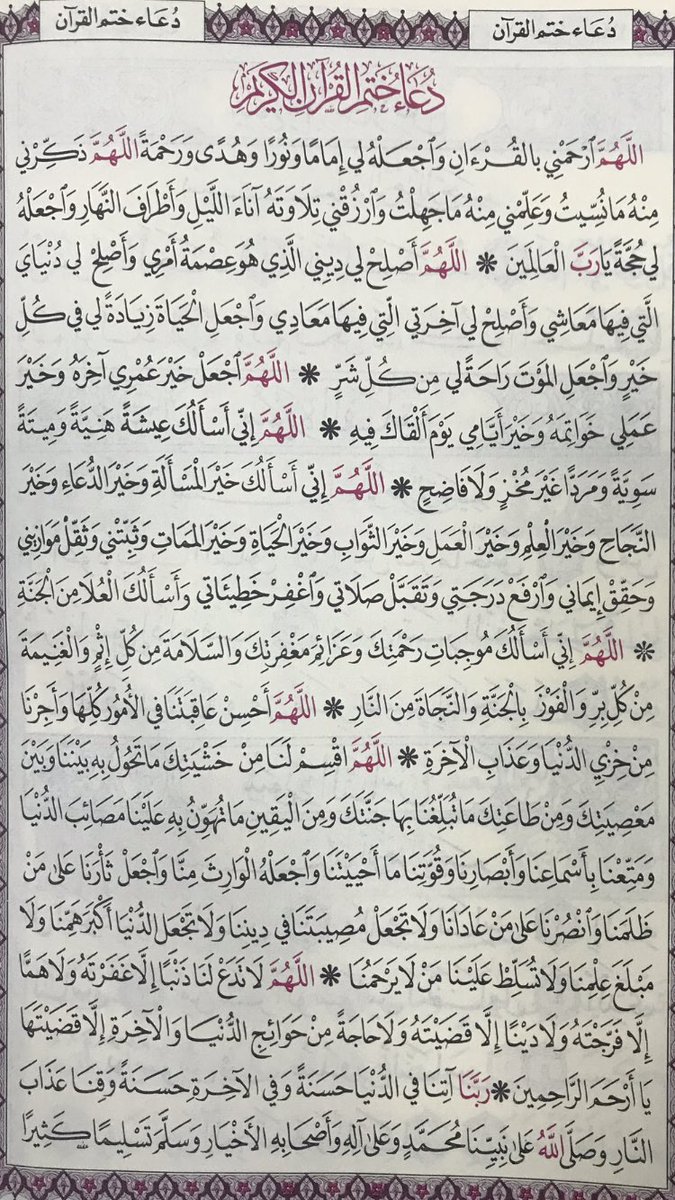 دُعَاء ختم القرآن
دُعَاء ختم القرآن
دُعَاءُ خَتْمِ القُرْآنِ الكَرِيمِ
اللَّهُمَّ ٱرْحَمْنِي بالقُرْءَانِ وَٱجْعَلْهُ لِي إِمَامًا وَنُورًا وَهُدًى وَرَحْمَةً اللَّهُمَّ ذَكِّرْنِي
مِنْهُ مَا نُسِّيتُ وَعَلِّمْنِي مِنْهُ مَا جَهِلْتُ وَٱرْزُقْنِي تِلَاوَتَهُ آنَاءَ اللَّيْلِ وَأَطْرَافَ النَّهَارِ وَٱجْعَلْهُ
لِي حُجَّةً يَا رَبَّ الْعَالَمِينَ * اللَّهُمَّ أَصْلِحْ لِي دِينِي الَّذِي هُوَ عِصْمَةُ أَمْرِي وَأَصْلِحْ لِي دُنْيَايَ
الَّتِي فِيهَا مَعَاشِي وَأَصْلِحْ لِي آخِرَتِي الَّتِي فِيهَا مَعَادِي وَٱجْعَلِ الْحَيَاةَ زِيَادَةً لِي فِي كُلِّ
خَيْرٍ وَٱجْعَلِ المَوْتَ رَاحَةً لِي مِن كُلِّ شَرٍّ * اللَّهُمَّ ٱجْعَلْ خَيْرَ عُمْرِي آخِرَهُ وَخَيْرَ
عَمَلِي خَوَاتِمَهُ وَخَيْرَ أَيَّامِي يَوْمَ أَلْقَاكَ فِيهِ * اللَّهُمَّ إِنِّي أَسْأَلُكَ عِيشَةً هَنِيَّةً وَمِيتَةً
سَوِيَّةً وَمَرَدًّا غَيْرَ مُخْزٍ وَلَا فَاضِحٍ * اللَّهُمَّ إِنِّي أَسْأَلُكَ خَيْرَ المَسْأَلَةِ وَخَيْرَ الدُّعَاءِ وَخَيْرَ
النَّجَاحِ وَخَيْرَ الْعِلْمِ وَخَيْرَ الْعَمَلِ وَخَيْرَ الثَّوَابِ وَخَيْرَ الْحَيَاةِ وَخَيْرَ المَمَاتِ وَثَبِّتْنِي وَثَقِّلْ مَوَازِينِي
وَحَقِّقْ إِيمَانِي وَٱرْفَعْ دَرَجَتِي وَتَقَبَّلْ صَلَاتِي وَٱغْفِرْ خَطِيئَاتِي وَأَسْأَلُكَ الْعُلَا مِنَ الْجَنَّةِ
* اللَّهُمَّ إِنِّي أَسْأَلُكَ مُوجِبَاتِ رَحْمَتِكَ وَعَزَائِمَ مَغْفِرَتِكَ وَالسَّلَامَةَ مِن كُلِّ إِثْمٍ وَالْغَنِيمَةَ
مِنْ كُلِّ بِرٍّ وَالْفَوْزَ بِالْجَنَّةِ وَالنَّجَاةَ مِنَ النَّارِ * اللَّهُمَّ أَحْسِنْ عَاقِبَتَنَا فِي الأُمُورِ كُلِّهَا وَأَجِرْنَا
مِنْ خِزْيِ الدُّنْيَا وَعَذَابِ الْآخِرَةِ * اللَّهُمَّ اقْسِمْ لَنَا مِنْ خَشْيَتِكَ مَا تَحُولُ بِهِ بَيْنَنَا وَبَيْنَ
مَعْصِيَتِكَ وَمِنْ طَاعَتِكَ مَا تُبَلِّغُنَا بِهَا جَنَّتَكَ وَمِنَ الْيَقِينِ مَا تُهَوِّنُ بِهِ عَلَيْنَا مَصَائِبَ الدُّنْيَا
وَمَتِّعْنَا بِأَسْمَاعِنَا وَأَبْصَارِنَا وَقُوَّتِنَا مَا أَحْيَيْتَنَا وَٱجْعَلْهُ الْوَارِثَ مِنَّا وَٱجْعَلْ ثَأْرَنَا عَلَىٰ مَنْ
ظَلَمَنَا وَٱنْصُرْنَا عَلَىٰ مَنْ عَادَانَا وَلَا تَجْعَلْ مُصِيبَتَنَا فِي دِينِنَا وَلَا تَجْعَلِ الدُّنْيَا أَكْبَرَ هَمِّنَا وَلَا
مَبْلَغَ عِلْمِنَا وَلَا تُسَلِّطْ عَلَيْنَا مَنْ لَا يَرْحَمُنَا * اللَّهُمَّ لَا تَدَعْ لَنَا ذَنْبًا إِلَّا غَفَرْتَهُ وَلَا هَمًّا
إِلَّا فَرَّجْتَهُ وَلَا دَيْنًا إِلَّا قَضَيْتَهُ وَلَا حَاجَةً مِنْ حَوَائِجِ الدُّنْيَا وَالْآخِرَةِ إِلَّا قَضَيْتَهَا
يَا أَرْحَمَ الرَّاحِمِينَ * رَبَّنَا آتِنَا فِي الدُّنْيَا حَسَنَةً وَفِي الآخِرَةِ حَسَنَةً وَقِنَا عَذَابَ
النَّارِ وَصَلَّى اللَّهُ عَلَىٰ نَبِيِّنَا مُحَمَّدٍ وَعَلَىٰ آلِهِ وَأَصْحَابِهِ الأَخْيَارِ وَسَلَّمَ تَسْلِيمًا كَثِيرًا